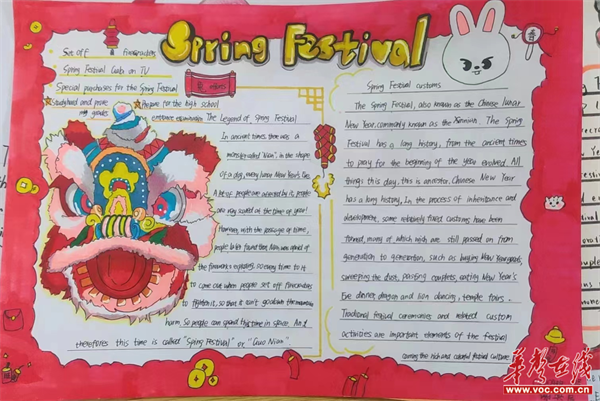 Spring Festival
Set off firecrackers
Spring Festival Gala on TV
Special purchases for the Spring Festival
Study hard and
Prepare for the high school
grades
The Legend of Spring Festival
In ancient times there was a
monster called "Nian", in the shape
of a dog, every lunar New Year's Eve,
A lot of people are by it, people
are very scared at the time of year!
However, with the passage of time,
people later found that Nian was afraid of
the fireworks exploding. so every time to it
to come out, when people set off firecrackers
to frighten it, so that it isn't go down the mountain
harm. So people can spend this time in peace. And
therefores this time is called "Spring Festival" or "Guo Nian".
Spring Festival customs
The Spring Festival, also known as the Chinese lunar
New Year, commonly known as the The Spring
Festival has a long history, from the ancient times
to pray for the beginning of the year evolved. All
things this day, this is ancestor. Chinese New Year
has a long history, In the process of inheritance and
development, some relatively fixed customs have been
formed, many of which are still passed on from
generation to generation, such as buying New Year goods,
sweeping the dust, pasting couplets, eating New Year's
Eve dinner, dragon and lion dancing, temple fairs.
Traditional festival ceremonies and related custom
activities are important elements of the festival
carrying the rich and colorful festival culture
春
华声在线
www.voc.com.cn